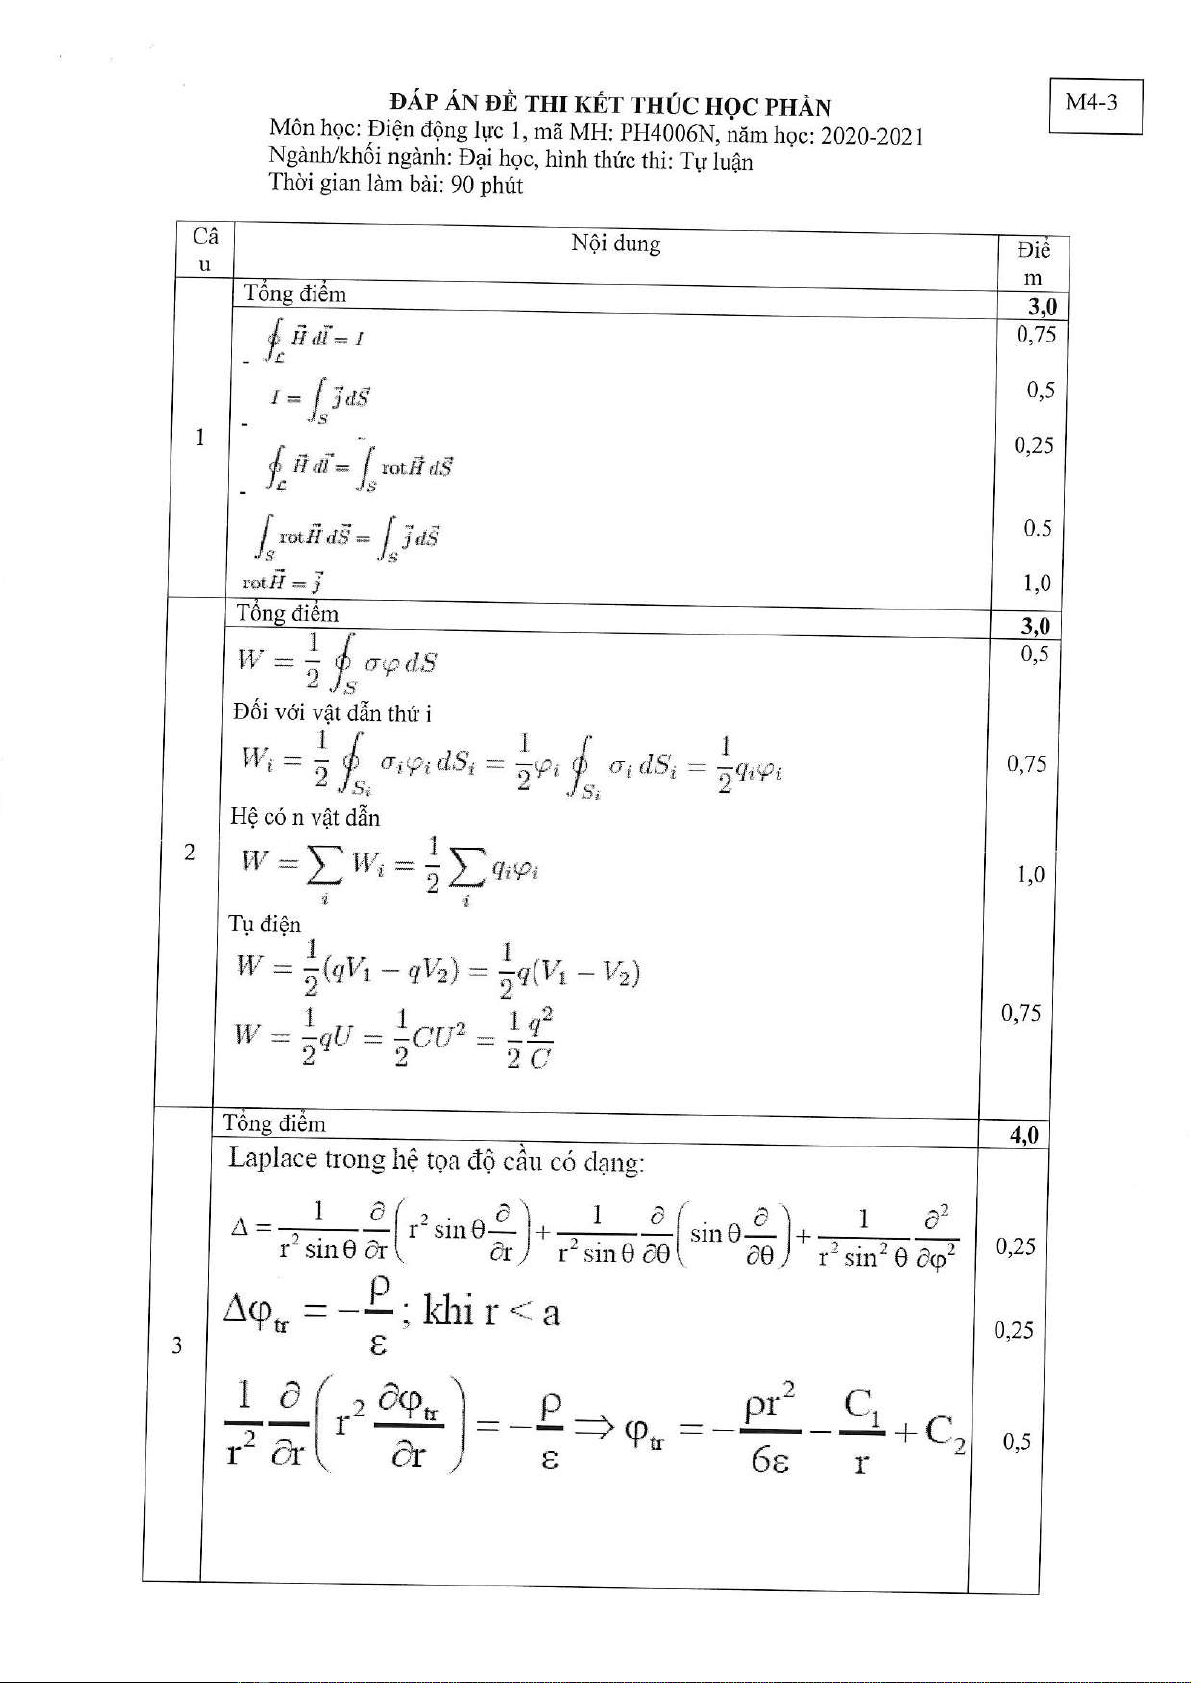 M4-3
ĐÁP ÁN ĐỀ THI KẾT THÚC HỌC PHẦN
Môn học: Điện động lực 1, mã MH: PH4006N, năm học: 2020-2021
Ngành/khối ngành: Đại học, hình thức thi: Tự luận
Thời gian làm bài: 90 phút
Câ
u
Nội dung
Điể
m
1
Tổng điểm 3,0
- ∮_ℒ H⃗ dl⃗ = I 0,75
- I = ∫_S j⃗ dS⃗ 0,5
- ∮_ℒ H⃗ dl⃗ = ∫_S rot H⃗ dS⃗ 0,25
∫_S rot H⃗ dS⃗ = ∫_S j⃗ dS⃗ 0.5
rot H⃗ = j⃗ 1,0
2
Tổng điểm 3,0
W = 1/2 ∮_S σφ dS 0,5
Đối với vật dẫn thứ i
W_i = 1/2 ∮_{S_i} σ_i φ_i dS_i = 1/2 φ_i ∮_{S_i} σ_i dS_i = 1/2 q_i φ_i 0,75
Hệ có n vật dẫn
W = ∑_i W_i = 1/2 ∑_i q_i φ_i 1,0
Tụ điện
W = 1/2 (qV₁ − qV₂) = 1/2 q(V₁ − V₂)
W = 1/2 qU = 1/2 CU² = 1/2 q²/C 0,75
3
Tổng điểm 4,0
Laplace trong hệ tọa độ cầu có dạng:
Δ = 1/(r² sin θ) ∂/∂r (r² sin θ ∂/∂r) + 1/(r² sin θ) ∂/∂θ (sin θ ∂/∂θ) + 1/(r² sin² θ) ∂²/∂φ² 0,25
Δφ_tr = −ρ/ε ; khi r < a 0,25
1/r² ∂/∂r (r² ∂φ_tr/∂r) = −ρ/ε ⇒ φ_tr = −ρr²/6ε − C₁/r + C₂ 0,5